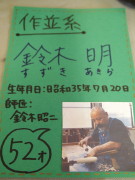 作並系
鈴木 明
すずき あきら
生年月日:昭和35年7月20日
師匠:
鈴木昭二
52才